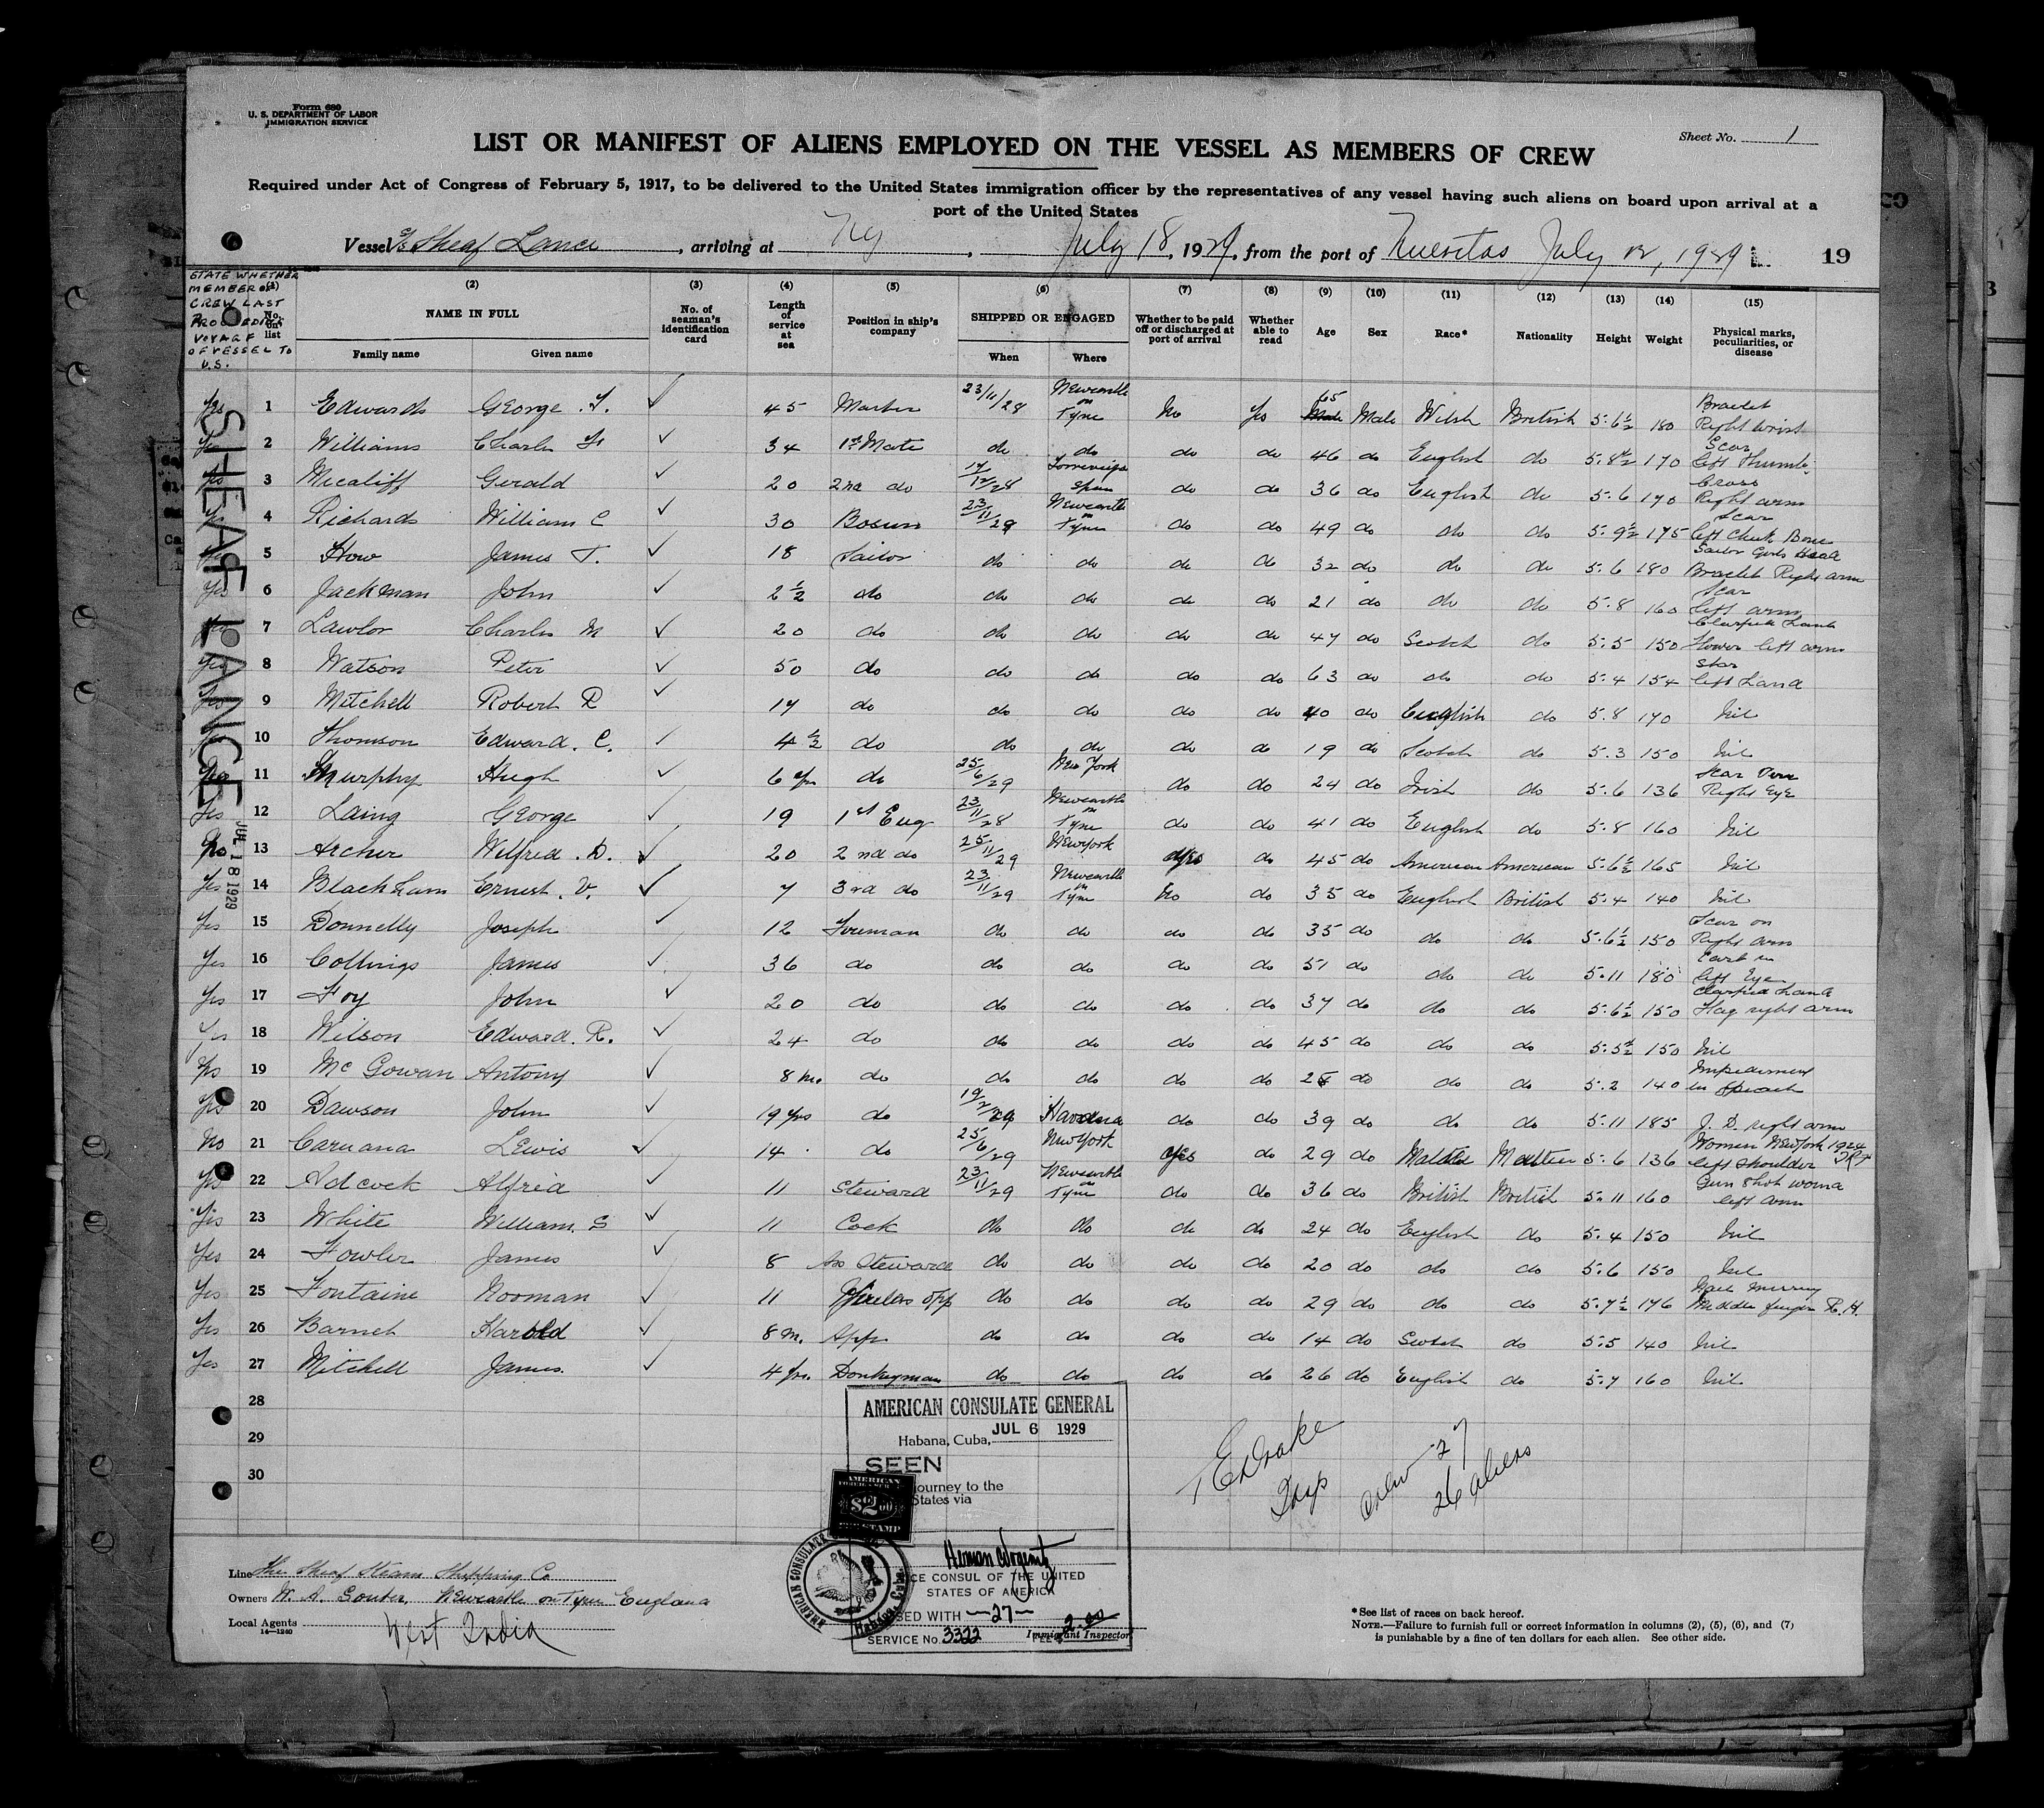 Form 680
U. S. DEPARTMENT OF LABOR
IMMIGRATION SERVICE
Sheet No. 1
LIST OR MANIFEST OF ALIENS EMPLOYED ON THE VESSEL AS MEMBERS OF CREW
Required under Act of Congress of February 5, 1917, to be delivered to the United States immigration officer by the representatives of any vessel having such aliens on board upon arrival at a
port of the United States
Vessel S/S Sheaf Lance, arriving at Ny, July 18, 1929, from the port of Nuevitas July 12, 1929 19
STATE WHETHER MEMBER OF CREW LAST PROCEEDING VOYAGE OF VESSEL TO U.S.
(1) No. on list
(2) NAME IN FULL
Family name Given name
(3) No. of seaman's identification card
(4) Length of service at sea
(5) Position in ship's company
(6) SHIPPED OR ENGAGED
When Where
(7) Whether to be paid off or discharged at port of arrival
(8) Whether able to read
(9) Age
(10) Sex
(11) Race*
(12) Nationality
(13) Height
(14) Weight
(15) Physical marks, peculiarities, or disease
SHEAF LANCE JUL 18 1929
Yes 1 Edwards George. T. ✓ 45 Master 23/11/28 Newcastle on Tyne No Yes 65 Male Welsh British 5.6½ 180 Bracelet Right wrist
Yes 2 Williams Charles ✓ 34 1st Mate do do do do 46 do English do 5.8½ 170 Scar left Thumb
Yes 3 Micaliff Gerald ✓ 20 2nd do 17/12/28 Spain do do 36 do English do 5.6 170 Cross Right arm
Yes 4 Richards William C ✓ 30 Bosun 23/11/29 Newcastle on Tyne do do 49 do do do 5.9½ 175 Scar left Cheek Bone
Yes 5 How James T. ✓ 18 Sailor do do do do 32 do do do 5.6 180 Sailor Girls Head Bracelet Right arm
Yes 6 Jackman John ✓ 2½ do do do do do 21 do do do 5.8 160 Scar left arm
Yes 7 Lawlor Charles M ✓ 20 do do do do do 47 do Scotch do 5.5 150 Clasped hands Flower left arm
Yes 8 Watson Peter ✓ 50 do do do do do 63 do do do 5.4 154 Star left hand
Yes 9 Mitchell Robert R ✓ 17 do do do do do 40 do English do 5.8 170 Nil
Yes 10 Thomson Edward. C. ✓ 4½ do do do do do 19 do Scotch do 5.3 150 Nil
No 11 Murphy Hugh ✓ 6 yrs do 25/6/29 New York do do 24 do Irish do 5.6 136 Scar Over Right Eye
Yes 12 Laing George ✓ 19 1st Eng 23/11/28 Newcastle on Tyne do do 41 do English do 5.8 160 Nil
No 13 Archer Wilfred. D. ✓ 20 2nd do 25/11/29 New York Yes do 45 do American American 5.6½ 165 Nil
Yes 14 Blackham Ernest. V. ✓ 7 3rd do 23/11/29 Newcastle on Tyne No do 35 do English British 5.4 140 Nil
Yes 15 Donnelly Joseph ✓ 12 Fireman do do do do 35 do do do 5.6½ 150 Scar on Right arm
Yes 16 Collings James ✓ 36 do do do do do 51 do do do 5.11 180 left Eye
Yes 17 Foy John ✓ 20 do do do do do 37 do do do 5.6½ 150 Clasped hands Flag right arm
Yes 18 Wilson Edward. R. ✓ 24 do do do do do 45 do do do 5.5½ 150 Nil
Yes 19 McGowan Antony ✓ 8 mo. do do do do do do do do 5.2 140 Impediment in Speech
Yes 20 Dawson John ✓ 19 yrs do 19/2/29 Havana do do 39 do do do 5.11 185 J. D. right arm
No 21 Caruana Lewis ✓ 14 do 25/6/29 New York Yes do 29 do 5.6 136 Woman New York 1924 left shoulder
Yes 22 Adcock Alfred ✓ 11 Steward 23/11/29 Newcastle on Tyne do do 36 do British British 5.11 160 Gun Shot wound left arm
Yes 23 White William. S ✓ 11 Cook do do do do 24 do English do 5.4 150 Nil
Yes 24 Fowler James ✓ 8 Ass Steward do do do do 20 do do do 5.6 150 Nil
Yes 25 Fontaine Norman ✓ 11 Wireless Opp do do do do 29 do do do 5.7½ 176 Nail missing Middle finger R. H.
Yes 26 Barnet Harold ✓ 8 m. App do do do do 14 do Scotch do 5.5 140 Nil
Yes 27 Mitchell James. ✓ 4 yrs. Donkeyman do do do do 26 do English do 5.7 160 Nil
28
29
30
AMERICAN CONSULATE GENERAL
Habana, Cuba, JUL 6 1929
SEEN
journey to the
States via
AMERICAN
$2.00
FEE STAMP
AMERICAN CONSULATE
Habana, Cuba.
VICE CONSUL OF THE UNITED
STATES OF AMERICA
SED WITH —27—
SERVICE No. 3322 2.00
Immigrant Inspector
E Drake
Insp
Crew 27
26 aliens
Line The Sheaf Steam Shipping Co
Owners W. A. Souter, Newcastle on Tyne England
Local Agents West India
14—1240
*See list of races on back hereof.
NOTE.—Failure to furnish full or correct information in columns (2), (5), (6), and (7)
is punishable by a fine of ten dollars for each alien. See other side.